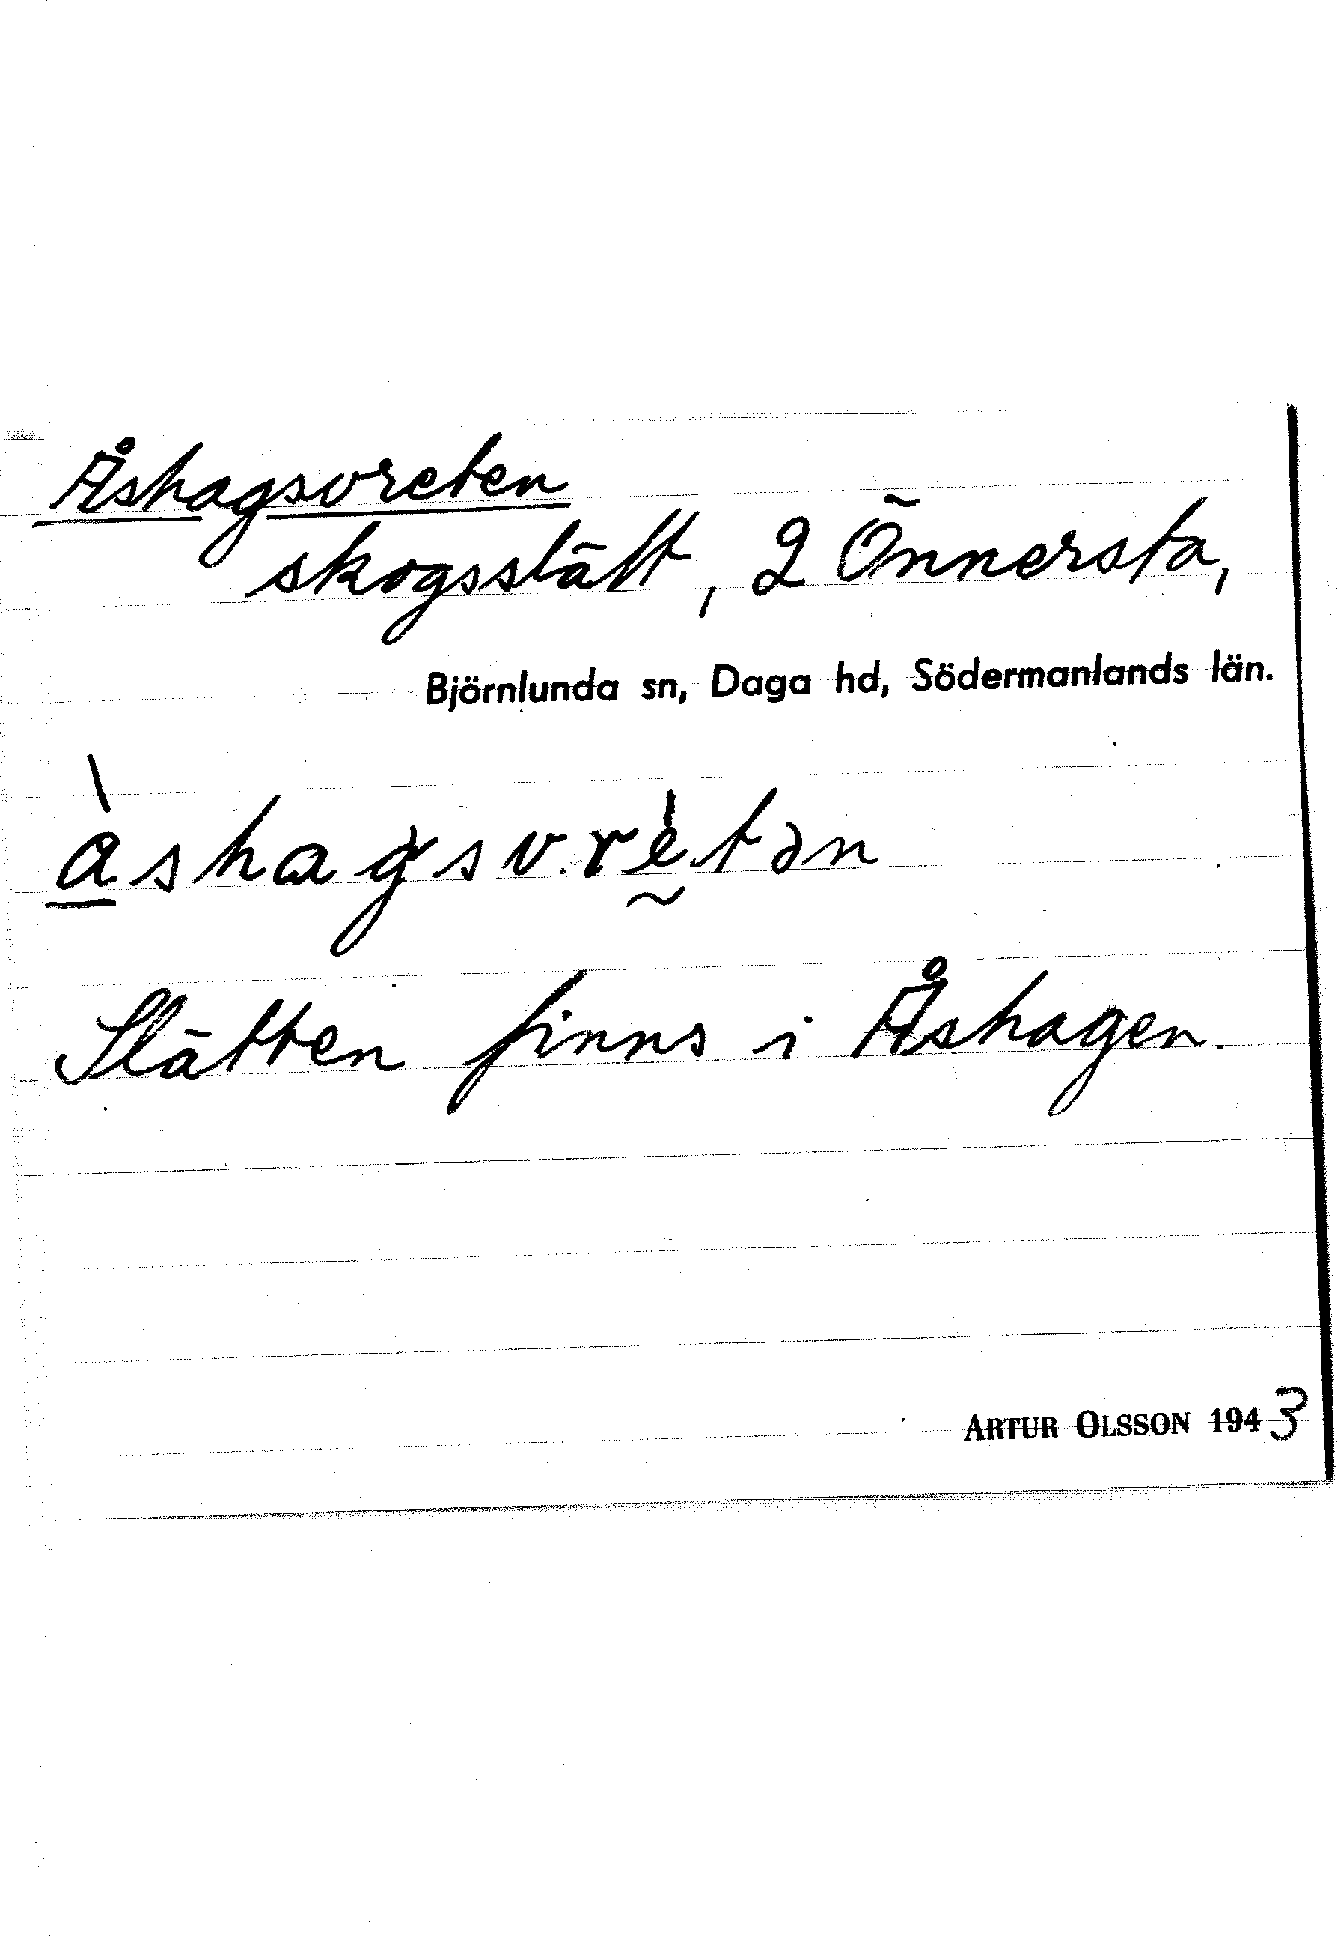 Åshagsvreten
skogsslätt, 2 Önnersta,
Björnlunda sn, Daga hd, Södermanlands län.
à̱shagsvrḛ̀tən
Slätten finns i Åshagen.
ARTUR OLSSON 1943